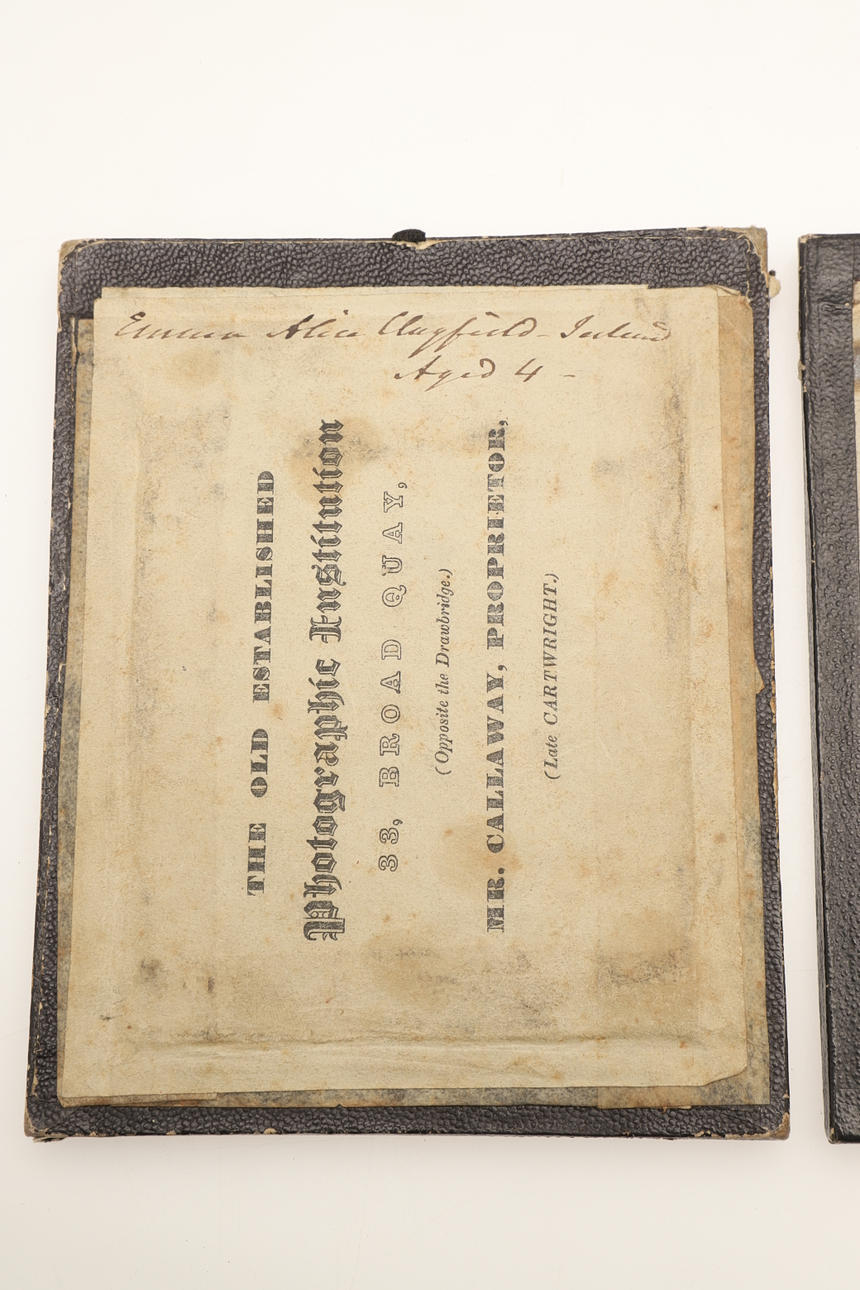 Emma Alice Clayfield - Ireland
Aged 4 -
THE OLD ESTABLISHED
Photographic Institution
33, BROAD QUAY,
(Opposite the Drawbridge.)
MR. CALLAWAY, PROPRIETOR,
(Late CARTWRIGHT.)